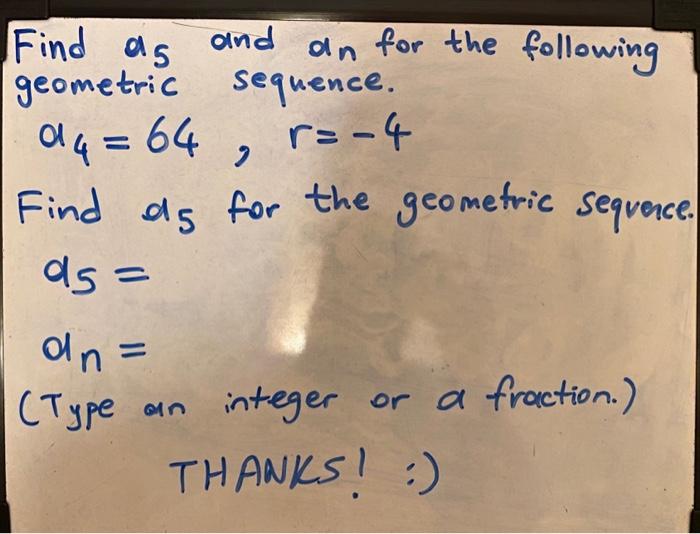 Find a5 and an for the following
geometric sequence.
a4 = 64 , r = -4
Find a5 for the geometric sequence.
a5 =
an =
(Type an integer or a fraction.)
THANKS! :)